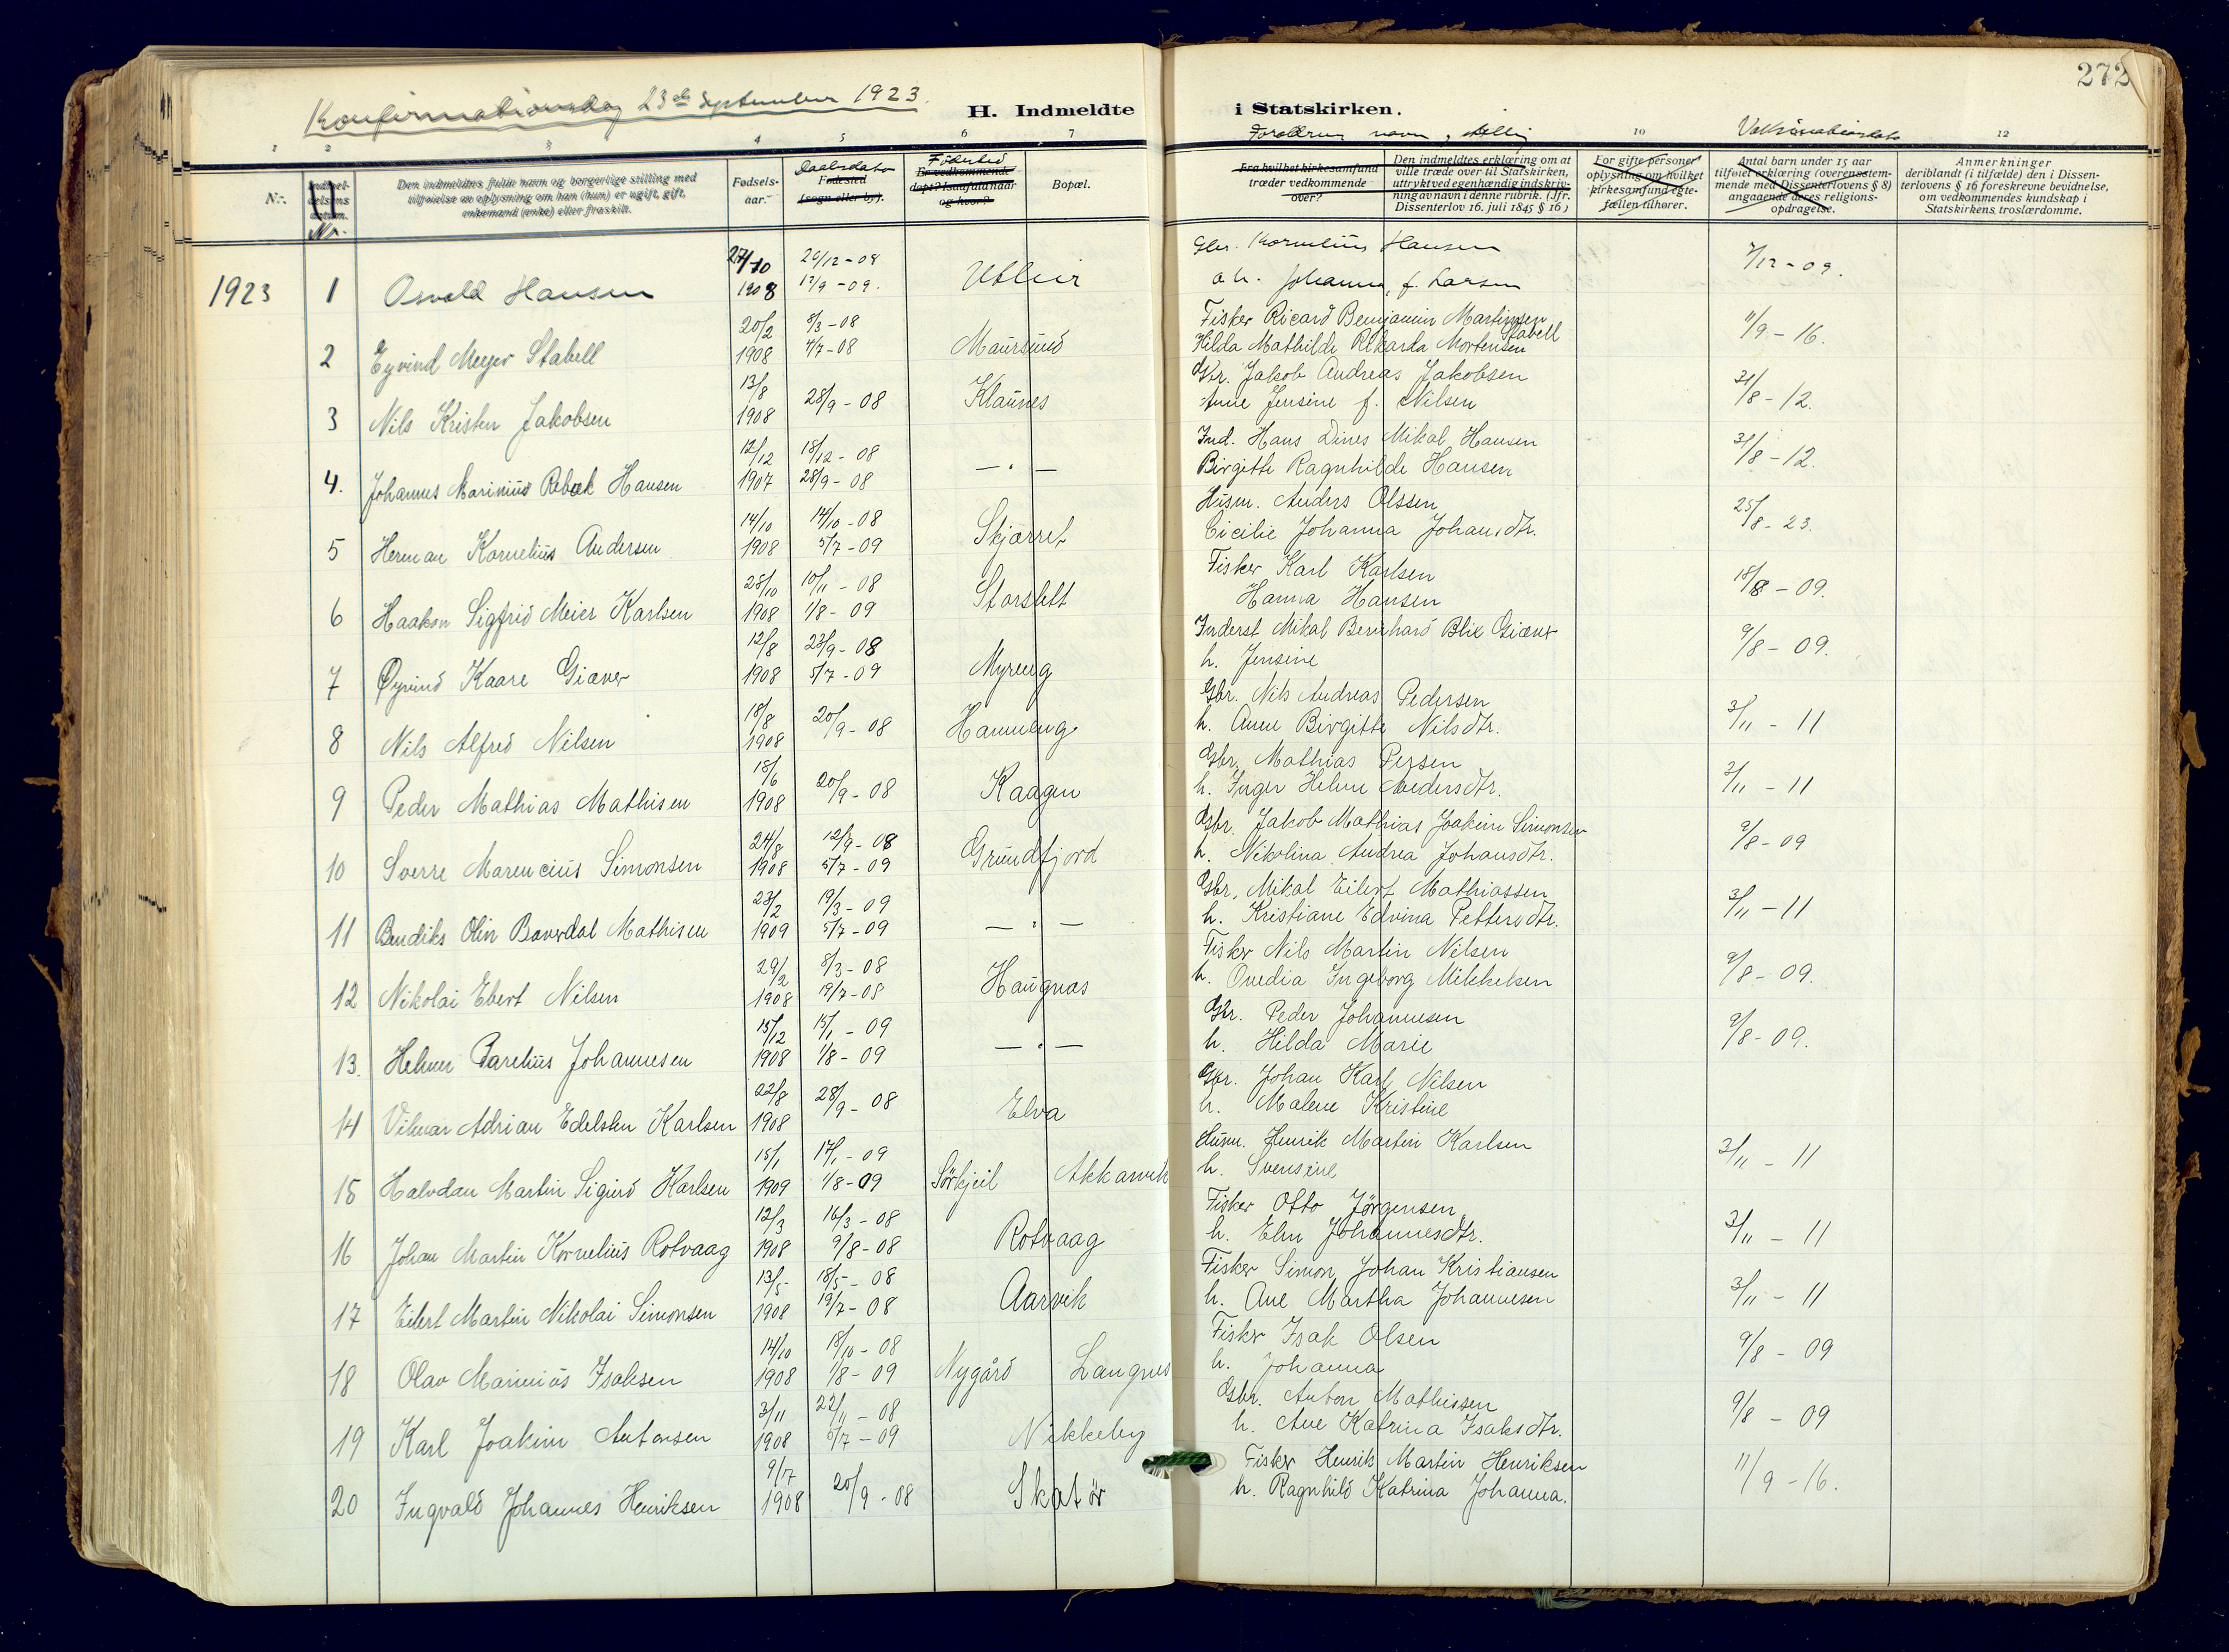 272
Konfirmationsdag 23de September 1923.
H. Indmeldte i Statskirken.
Forældrenes navn, stilling
Vaksinationsdato
1 2 3 4 5 6 7 10 12
Nr.
Indmeldelsens datum.
Nr.
Den indmeldtes fulde navn og borgerlige stilling med tilføielse av oplysning om han (hun) er ugift, gift, enkemand (enke) eller fraskilt.
Fødsels-aar.
Daabsdato
Fødested (sogn eller by).
Fødested
Er vedkommende døpt? Isaafald naar og hvor?
Bopæl.
Fra hvilket kirkesamfund træder vedkommende over?
Den indmeldtes erklæring om at ville træde over til Statskirken, uttrykt ved egenhændig indskrivning av navn i denne rubrik. (Jfr. Dissenterlov 16. juli 1845 § 16)
For gifte personer oplysning om hvilket kirkesamfund egtefællen tilhører.
Antal barn under 15 aar tilføiet erklæring (overensstemmende med Dissenterlovens § 8) angaaende deres religionsopdragelse.
Anmerkninger deriblandt (i tilfælde) den i Dissenterlovens § 16 foreskrevne bevidnelse, om vedkommendes kundskap i Statskirkens troslærdomme.
1923 1 Osvald Hansen 27/10 1908 26/12-08 12/9-09. Gbr. Kornelius Hansen
o h. Johanna, f. Larsen 7/12-09.
2 Eyvind Meyer Stabell 20/2 1908 8/3-08 4/7-08 Maursund Fisker Ricard Benjamin Martinsen Stabell
Hilda Mathilde Rikarda Mortensen 11/9-16.
3 Nils Kristen Jakobsen 13/8 1908 28/9-08 Klaunes Gbr. Jakob Andreas Jakobsen
Anne Jensine f. Nilsen 31/8-12.
4. Johannes Marinius Rebæk Hansen 12/12 1907 18/12-08 28/9-08 — " — Ind. Hans Dines Mikal Hansen
Birgitte Ragnhilde Hansen 31/8-12.
5 Herman Kornelius Andersen 14/10 1908 14/10-08 5/7-09 Skjærret Husm. Anders Olssen
Cicilie Johanna Johansdtr. 25/8-23.
6 Haakon Sigfrid Meier Karlsen 28/10 1908 10/11-08 1/8-09 Storslett Fisker Karl Karlsen
Hanna Hansen 18/8-09.
7 Øyvind Kaare Giæver 12/8 1908 23/9-08 5/7-09 Myreng Inderst Mikal Bernhard Blix Giæver
h. Jensine 9/8-09.
8 Nils Alfred Nilsen 18/8 1908 20/9-08 Hamneng Gbr. Nils Andreas Pedersen
h. Anne Birgitte Nilsdtr. 3/11-11
9 Peder Mathias Mathisen 18/6 1908 20/9-08 Kaagen Gbr. Mathias Persen
h. Inger Helene Nedersdtr. 3/11-11
10 Sverre Marencius Simonsen 24/8 1908 12/9-08 5/7-09 Grundfjord Gbr. Jakob Mathias Joakim Simonsen
h. Nikolina Andrea Johansdtr. 9/8-09
11 Bendiks Olin Baverdal Mathisen 23/2 1909 19/3-09 5/7-09 — " — Gbr. Mikal Eilert Mathiassen
h. Kristiane Edvina Pettersdtr. 3/11-11
12 Nikolai Ebert Nilsen 29/2 1908 8/3-08 19/7-08 Haugnæs Fisker Nils Martin Nilsen
h. Ovedia Ingeborg Mikkelsen 9/8-09.
13. Helmer Parelius Johannesen 15/12 1908 15/1-09 1/8-09 — " — Gbr. Peder Johannesen
h. Hilda Marie 9/8-09.
14 Vilmar Adrian Edelsten Karlsen 22/8 1908 28/9-08 Elva Gbr. Johan Karl Nilsen
h. Malene Kristine
15 Halvdan Martin Sigurd Karlsen 15/1 1909 17/1-09 1/8-09 Sörkjeil Akkarvik Husm. Henrik Martin Karlsen
h. Svensine 3/11-11
16 Johan Martin Kornelius Rotvaag 12/3 1908 16/3-08 9/8-08 Rotvaag Fisker Otto Jørgensen
h. Elen Johannesdtr. 3/11-11
17 Eilert Martin Nikolai Simonsen 13/5 1908 18/5-08 19/7-08 Aarvik Fisker Simon Johan Kristiansen
h. Ane Martha Johannesen 3/11-11
18 Olav Marinius Isaksen 14/10 1908 18/10-08 1/8-09 Nygård Langnes Fisker Isak Olsen
h. Johanna 9/8-09
19 Karl Joakim Antonsen 3/11 1908 22/11-08 5/7-09 Nikkeby Gbr. Anton Mathissen
h. Ane Katrina Isaksdtr. 9/8-09
20 Ingvald Johannes Henriksen 9/7 1908 20/9-08 Skatör Fisker Henrik Martin Henriksen
h. Ragnhild Katrina Johanna. 11/9-16.